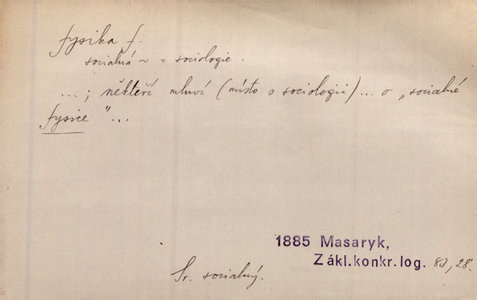 fysika f.
socialná ~ = sociologie.
...; někteří mluví (místo o sociologii) ... o „socialné
fysice" ...
1885 Masaryk,
Zákl.konkr.log. 80, 28.
Sr. socialný.